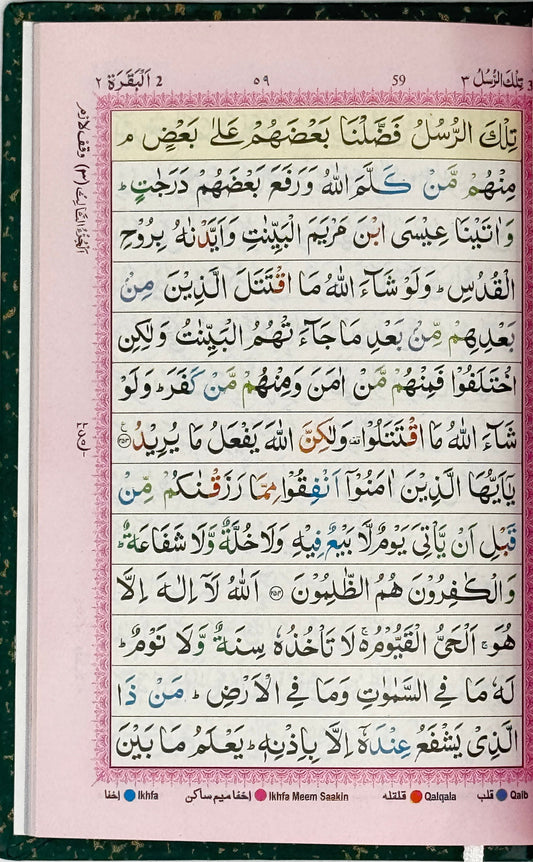 3 تِلْكَ الرُّسُلُ ٣ 59 ٥٩ 2 اَلْبَقَرَة ٢
تِلْكَ الرُّسُلُ فَضَّلْنَا بَعْضَهُمْ عَلٰى بَعْضٍ ۘ م
مِنْهُمْ مَّنْ كَلَّمَ اللّٰهُ وَرَفَعَ بَعْضَهُمْ دَرَجٰتٍ ؕ
وَاٰتَيْنَا عِيْسَى ابْنَ مَرْيَمَ الْبَيِّنٰتِ وَاَيَّدْنٰهُ بِرُوْحِ
الْقُدُسِ ؕ وَلَوْ شَآءَ اللّٰهُ مَا اقْتَتَلَ الَّذِيْنَ مِنْ
بَعْدِهِمْ مِّنْ بَعْدِ مَا جَآءَتْهُمُ الْبَيِّنٰتُ وَلٰكِنِ
اخْتَلَفُوْا فَمِنْهُمْ مَّنْ اٰمَنَ وَمِنْهُمْ مَّنْ كَفَرَ ؕ وَلَوْ
شَآءَ اللّٰهُ مَا اقْتَتَلُوْا وَلٰكِنَّ اللّٰهَ يَفْعَلُ مَا يُرِيْدُ ٢٥٣
يٰۤاَيُّهَا الَّذِيْنَ اٰمَنُوْۤا اَنْفِقُوْا مِمَّا رَزَقْنٰكُمْ مِّنْ
قَبْلِ اَنْ يَّاْتِيَ يَوْمٌ لَّا بَيْعٌ فِيْهِ وَلَا خُلَّةٌ وَّلَا شَفَاعَةٌ ؕ
وَالْكٰفِرُوْنَ هُمُ الظّٰلِمُوْنَ ٢٥٤ اَللّٰهُ لَاۤ اِلٰهَ اِلَّا
هُوَ ۚ اَلْحَيُّ الْقَيُّوْمُ ۚ لَا تَاْخُذُهٗ سِنَةٌ وَّلَا نَوْمٌ ؕ
لَهٗ مَا فِي السَّمٰوٰتِ وَمَا فِي الْاَرْضِ ؕ مَنْ ذَا
الَّذِيْ يَشْفَعُ عِنْدَهٗۤ اِلَّا بِاِذْنِهٖ ؕ يَعْلَمُ مَا بَيْنَ
اَلْجُزْءُ الثَّالِثُ (٣) وقف لازم
قلب Qalb قلقله Qalqala اخفا میم ساکن Ikhfa Meem Saakin اخفا Ikhfa